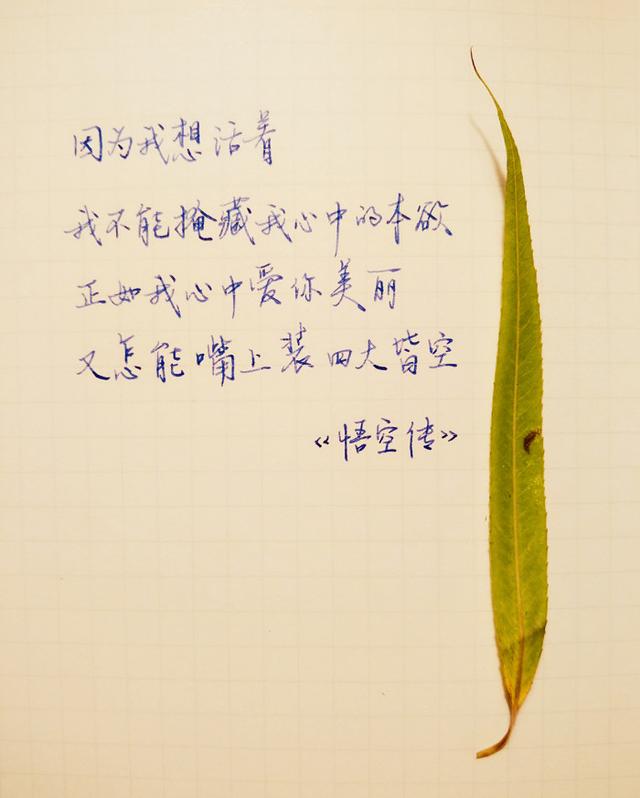 因为我想活着
我不能掩藏我心中的本欲
正如我心中爱你美丽
又怎能嘴上装四大皆空
《悟空传》